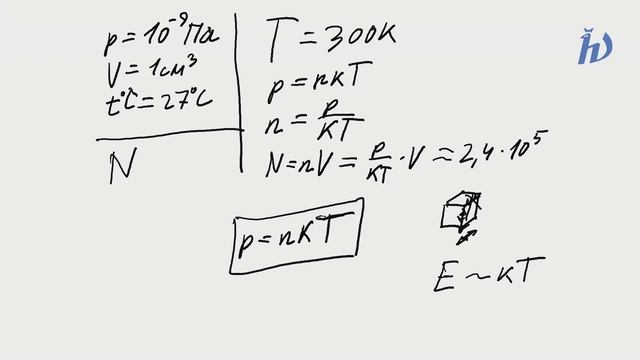 p = 10⁻⁹ Па
V = 1 см³
t°C = 27°C
N
T = 300K
p = nкT
n = p/кT
N = nV = p/кT · V ≈ 2,4 · 10⁵
p = nкT
E ~ кT